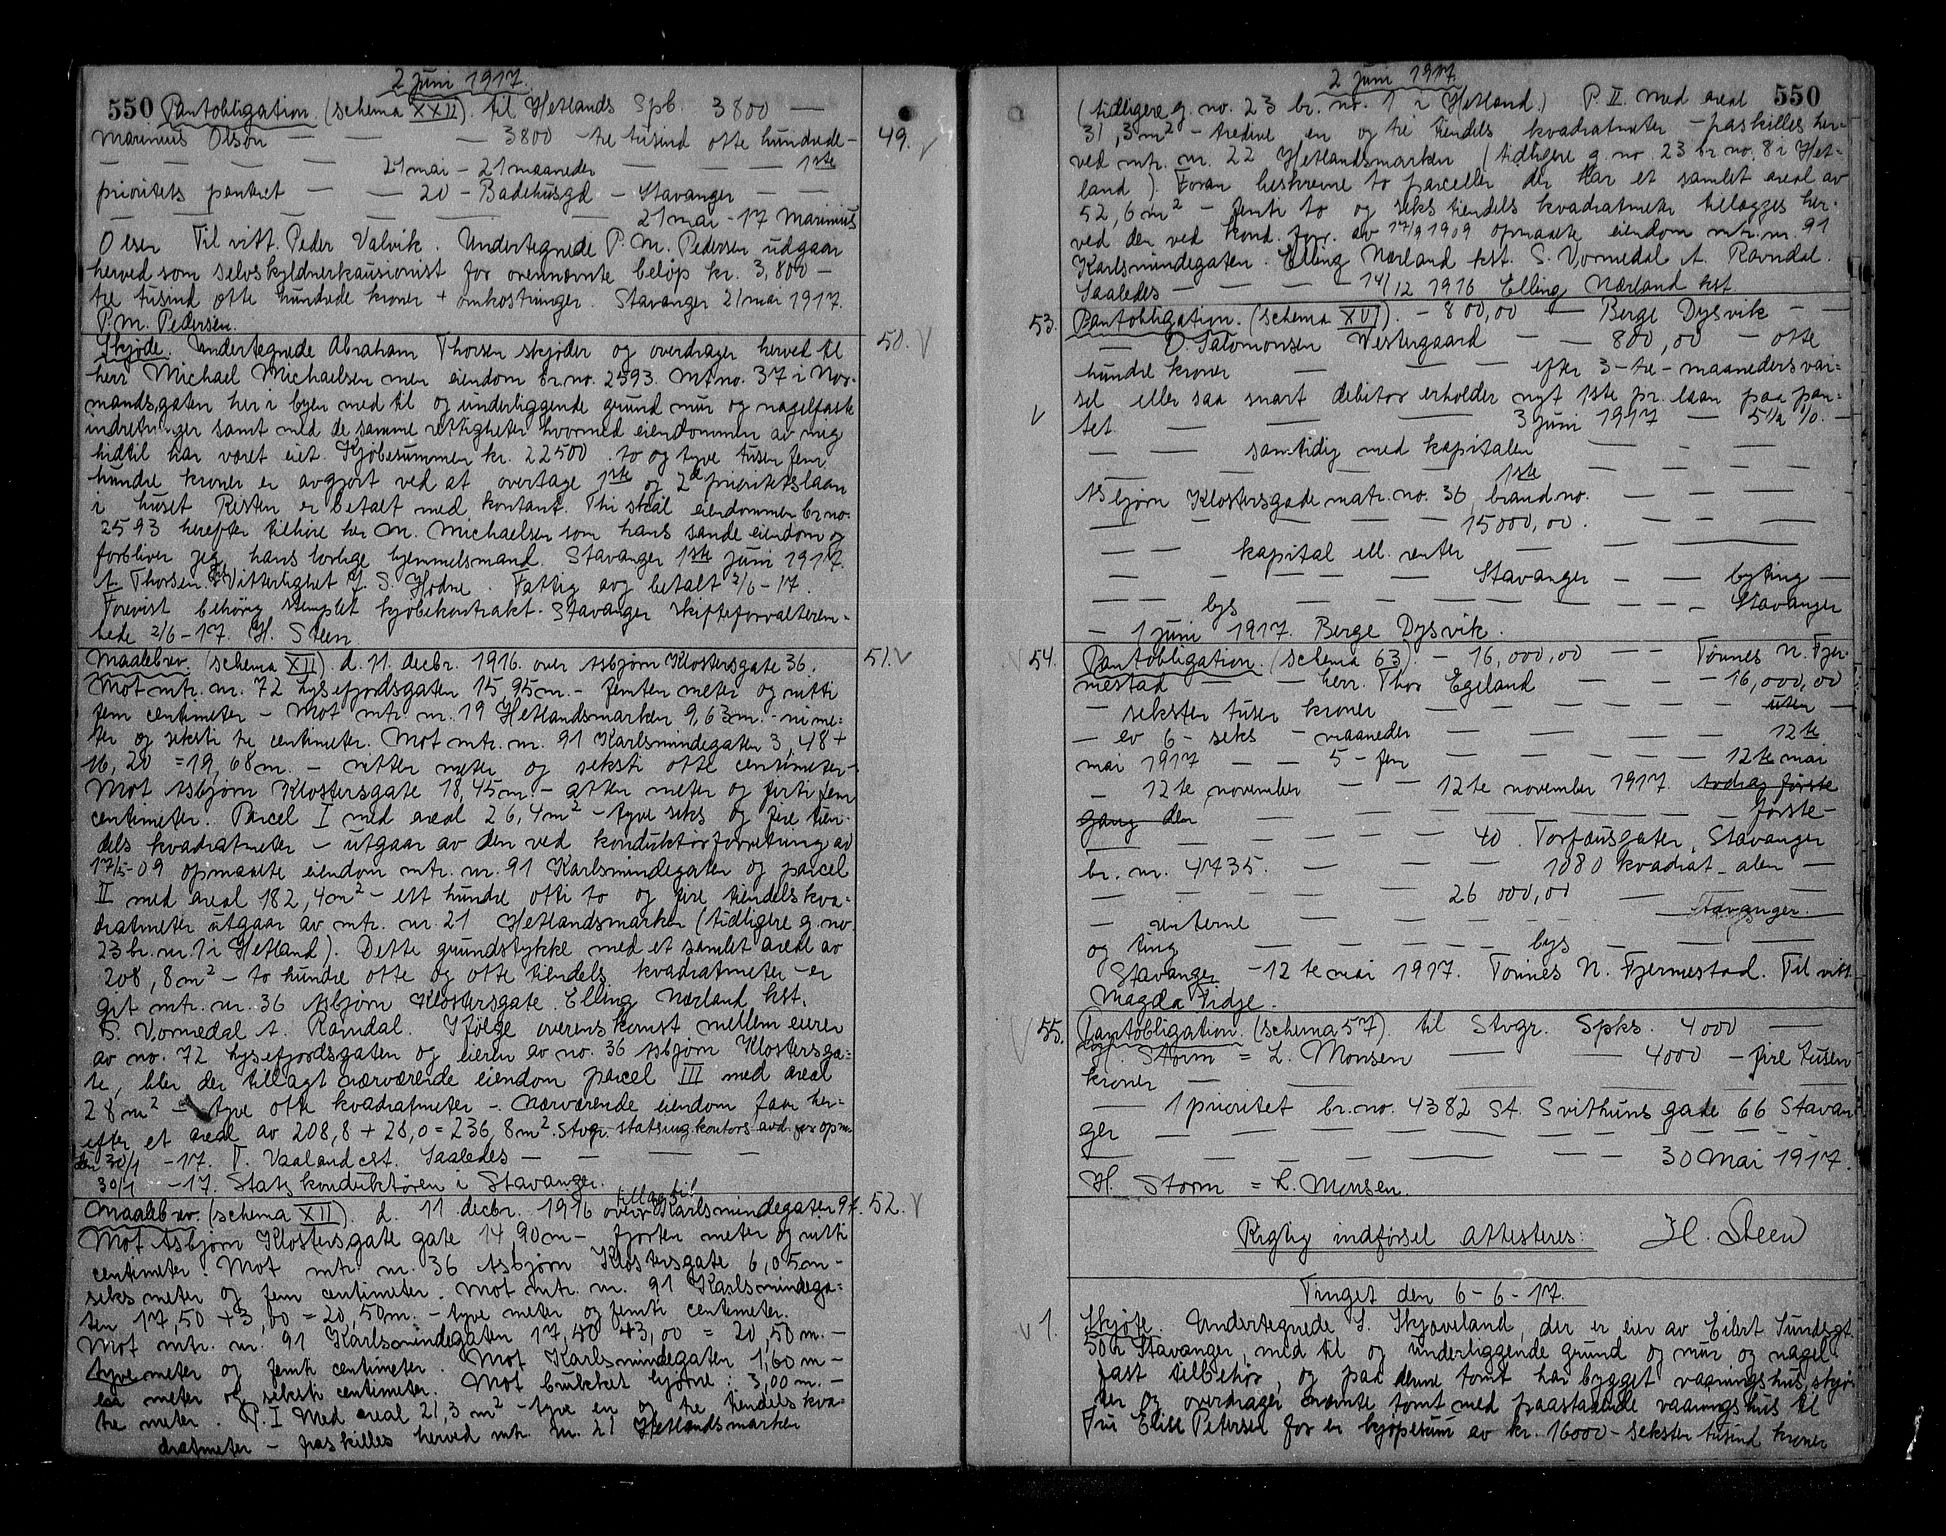 2 juni 1917.
550 Pantobligation. (schema XXII). til Hetlands Spb. 3800 —
Marinius Olson — — 3800 - tre tusind otte hundrede -
— — — 21 mai - 21 maaneder — — 1ste
prioritets panteret — — 20 - Badehusgd - Stavanger — —
— — — — — 21 mai - 17 Marinius
Olsen Til vitt. Peder Valvik. Undertegnede P. M. Pedersen udgaar
herved som selvskyldnerkausionist for overnævnte beløp kr. 3,800 -
tre tusind otte hundrede kroner + omkostninger. Stavanger 21 mai 1917.
P. M. Pedersen.
49.
Skjøde. Undertegnede Abraham Thorsen skjøder og overdrager herved til
herr Michael Michaelsen min eiendom br.no. 2593. Mt.no. 37 i Nor-
mandsgaten her i byen med til og underliggende grund mur og nagelfaste
indretninger samt med de samme rettigheter hvormed eiendommen av mig
hidtil har været eiet. Kjøbesummen kr. 22500 . to og tyve tusen fem
hundre kroner er avgjort ved at overtage 1ste og 2d prioritetslaan
i huset Resten er betalt med kontant. Thi skal eiendommen br no.
2593 herefter tilhøre hr M. Michaelsen som hans sande eiendom og
forbliver jeg hans lovlige hjemmelsmand. Stavanger 1ste juni 1917.
A. Thorsen. Til Vitterlighet J. S. Hodne. Fattig avg betalt 2/6 - 17.
Forevist behørig stemplet kjøbekontrakt. Stavanger skifteforvalterem-
bede 2/6 - 17. H. Steen
50.
Maalebrev. (schema XII). d. 11. decbr. 1916. over Asbjørn Klostersgate 36.
Mot mtr. nr. 72 Lysefjordsgaten 15,95 m. - femten meter og nitti
fem centimeter - Mot mtr. nr. 19 Hetlandsmarken 9,63 m. - ni me=
ter og seksti tre centimeter. Mot mtr. nr. 91 Karlsmindegaten 3,48 +
16,20 = 19,68 m. - nitten meter og seksti otte centimeter-
Mot Asbjørn Klostersgate 18,45 m - atten meter og førti fem
centimeter. Parcel I med areal 26,4 m² - tyve seks og fire tien-
dels kvadratmeter - utgaar av den ved konduktørforretning av
17/5-09 opmaalte eiendom mtr. nr. 91 Karlsmindegaten og parcel
II med areal 182,4 m² - ett hundre otti to og fire tiendels kva-
dratmeter utgaar av mtr. nr. 21 Hetlandsmarken (tidligere g. no.
23 br. nr. 1 i Hetland). Dette grundstykke med et samlet areal av
208,8 m² - to hundre otte og otte tiendels kvadratmeter - er
git mtr. nr. 36 Asbjørn Klostersgate. Elling Nærland kst.
S. Vormedal A. Ravndal. Ifølge overenskomst mellem eieren
av no. 72 Lysefjordsgaten og eieren av no. 36 Asbjørn Klostersga=
te, blev der tillagt nærværende eiendom parcel III med areal
28 m² - tyve otte kvadratmeter -. Nærværende eiendom faar her=
efter et areal av 208,8 + 28,0 = 236,8 m². Stvgr. statsing.kontors avd. for opm.
den 30/1 - 17. T. Vaaland cst. Saaledes — — — —
30/1 - 17. Stats konduktøren i Stavanger.
51.
tillæg til
Maalebrev. (schema XII). d. 11 decbr. 1916 over Karlsmindegaten 91.
Mot Asbjørn Klostersgate gate 14,90 m - fjorten meter og nitti
centimeter. Mot mtr. nr. 36 Asbjørn Klostersgate 6,05 m -
seks meter og fem centimeter. Mot mtr. nr. 91 Karlsmindega=
ten 17,50 + 3,00 = 20,50 m. - tyve meter og femti centimeter.
Mot mtr. nr. 91 Karlsmindegaten 17,50 + 3,00 = 20,50 m. -
tyve meter og femti centimeter. Mot Karlsmindegaten 1,60 m -
en meter og seksti centimeter. Mot brukket hjørne: 3,00 m. -
tre meter. P. I Med areal 21,3 m² - tyve en og tre tiendels kva-
dratmeter - paskilles herved mtr. nr. 21 Hetlandsmarken
52.
2 juni 1917.
(tidligere g. no. 23 br. nr. 1 i Hetland.) P II. med areal 550
31,3 m² - tredive en og tre tiendels kvadratmeter - paskilles her-
ved mtr. nr. 22 Hetlandsmarken (tidligere g. no. 23 br no. 8 i Het-
land). Foran beskrevne to parceller der har et samlet areal av
52,6 m² - femti to og seks tiendels kvadratmeter tilægges her-
ved den ved kond. forr. av 17/9 1909 opmaalte eiendom mtr. nr. 91
Karlsmindegaten. Elling Nærland kst. S. Vormedal A. Ravndal.
Saaledes — — — — 14/12 1916 Elling Nærland kst
53. Pantobligation. (schema XVI). - 800,00 — Berge Dysvik — —
— O. Salomonsen Vestergaard — — 800,00 — otte
hundre kroner — — — efter 3 - tre - maaneders var=
sel eller saa snart debitor erholder nyt 1ste pr. laan paa pan=
tet — — — 3 juni 1917 — 5½ %. -
— — samtidig med kapitalen — — — —
1ste
Asbjørn Klostersgade matr. no. 36, brand no. — — —
— — — — 15000,00. — — —
— — kapital ell. renter — — —
— — — — Stavanger — — byting —
— — bys — — — — — Stavanger
— 1 juni 1917. Berge Dysvik.
54. Pantobligation. (schema 63). - 16,000,00 — — Tønnes N. Fjer-
mestad — — herr. Thor Egeland — — — 16,000,00
— seksten tusen kroner — — — — — uten —
— ev 6 - seks - maaneder — — — — 12te
mai 1917 — — 5 - fem — — — — 12te mai
— 12te november — — 12te november 1917. avdrag første
gang den — — — — — første-
— — — — — 40. Torfæusgaten, Stavanger
br. nr. 4735. — — — — 1080 kvadrat alen —
— — — — 26 000,00 — —
— renterne — — — — Stavanger.
og ting — — — — bys — — —
Stavanger - 12te mai 1917. Tønnes N. Fjermestad. Til vitt.
Magda Tidje.
55. Pantobligation. (schema 57). til Stvgr. Spks. 4000 —
H. Storm = L. Monsen — — 4000 - fire tusen
kroner — — — — — —
— 1 prioritet br. no. 4382 St. Svithuns gade 66 Stavan
ger — — — — — — —
— — — — — — 30 Mai 1917.
H. Storm = L. Monsen.
Rigtig indførsel attesteres: H. Steen
Tinget den 6 - 6 - 17.
1. Skjøte. Undertegnede S. Skjæveland, der er eier av Eilert Sundsgt.
50 b Stavanger, med til og underliggende grund og mur og nagel-
fast tilbehør, og paa denne tomt har bygget vaaningshus, skjø-
ter og overdrager nævnte tomt med paastaaende vaaningshus til
Fru Elise Petersen for en kjøpesum av kr. 16000 - seksten tusind kroner